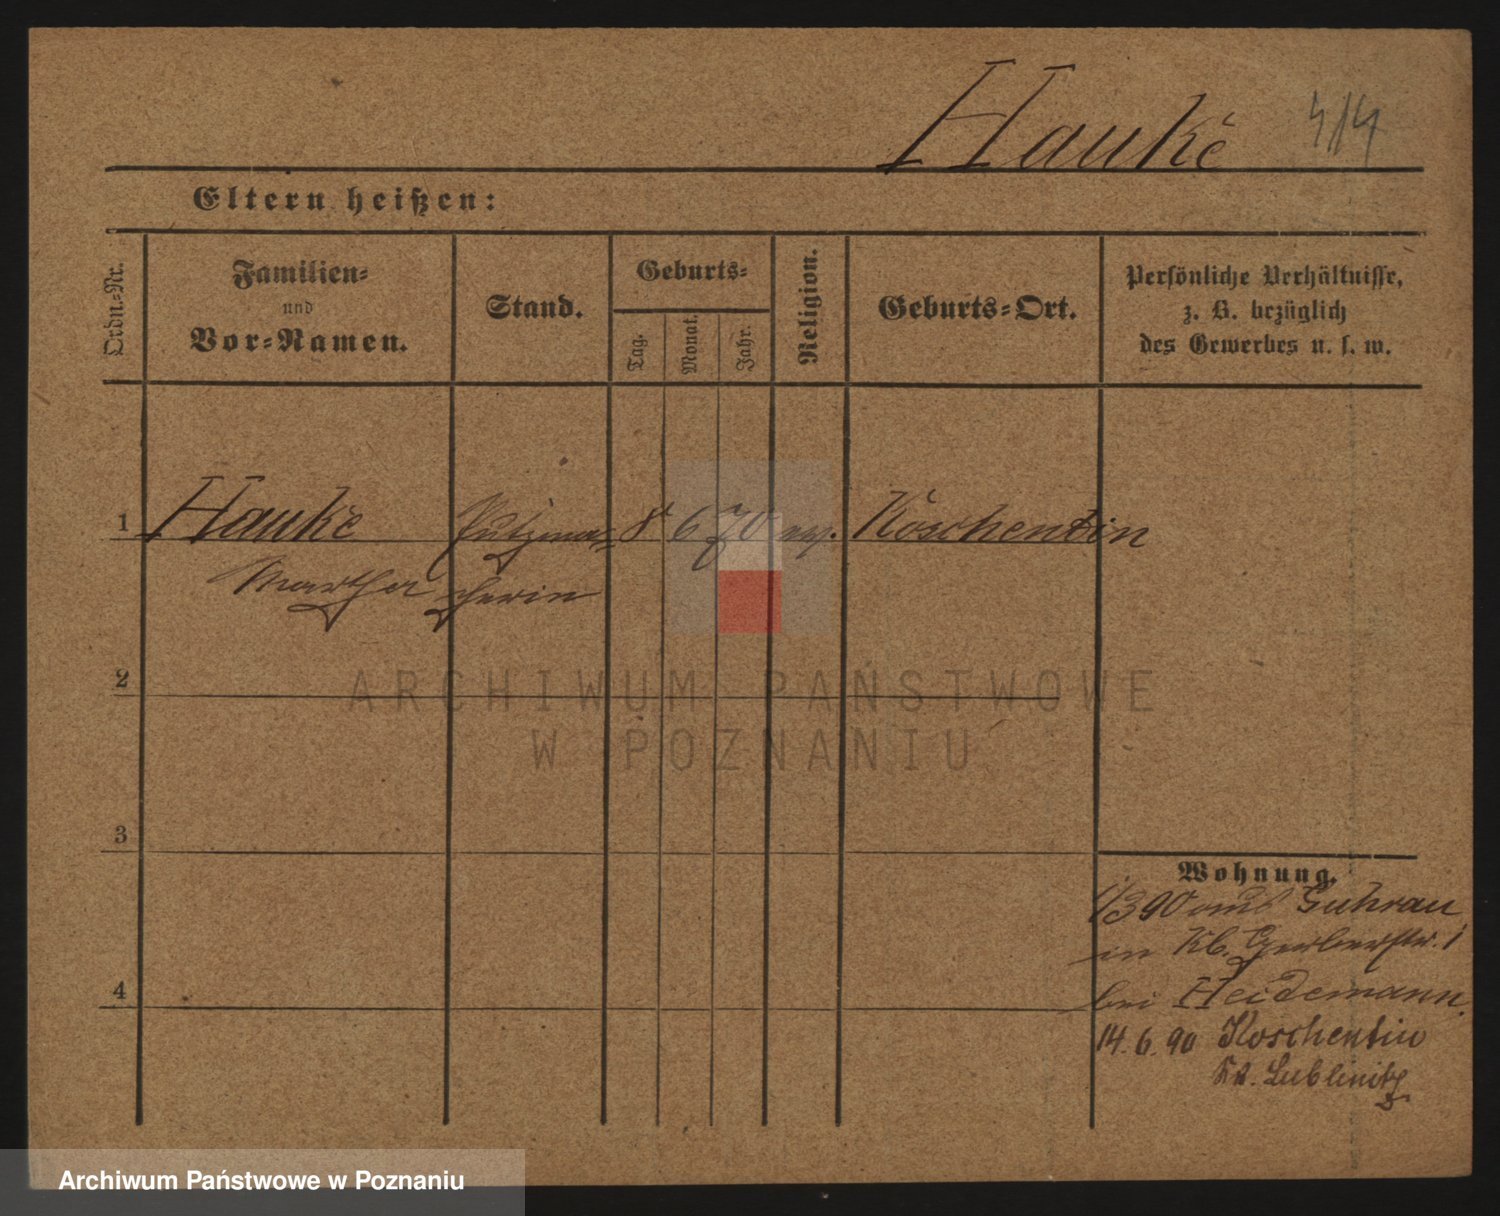 Hauke 4/4
Eltern heißen:
Ordn.-Nr.
Familien-
und
Vor-Namen.
Stand.
Geburts-
Tag.
Monat.
Jahr.
Religion.
Geburts-Ort.
Persönliche Verhältnisse,
z. B. bezüglich
des Gewerbes u. s. w.
1 Hauke Putzma- 8 6 70 ev. Koschentin
Martha cherin
2
ARCHIWUM PAŃSTWOWE
W POZNANIU
3
Wohnung.
1/3 90 aus Guhrau
in Kb. Gerberstr. 1
4
bei Heidemann.
14. 6. 90 Koschentin
Kr. Lublinitz
Archiwum Państwowe w Poznaniu